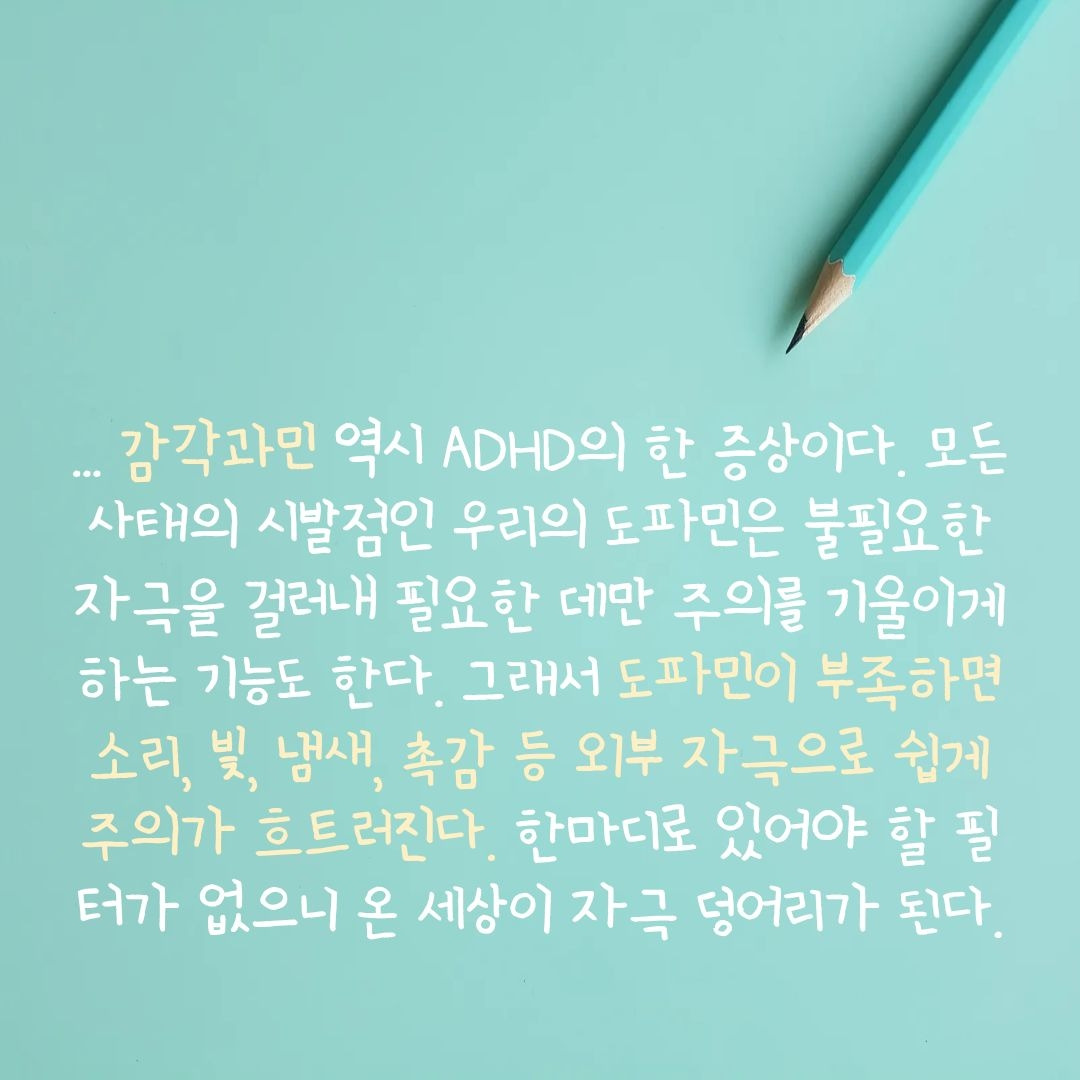 ... 감각과민 역시 ADHD의 한 증상이다. 모든
사태의 시발점인 우리의 도파민은 불필요한
자극을 걸러내 필요한 데만 주의를 기울이게
하는 기능도 한다. 그래서 도파민이 부족하면
소리, 빛, 냄새, 촉감 등 외부 자극으로 쉽게
주의가 흐트러진다. 한마디로 있어야 할 필
터가 없으니 온 세상이 자극 덩어리가 된다.